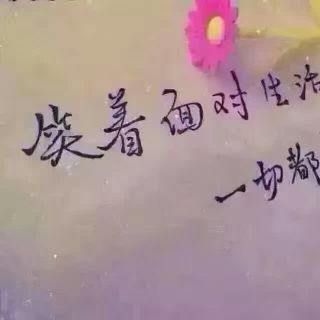 笑着面对生活
一切都